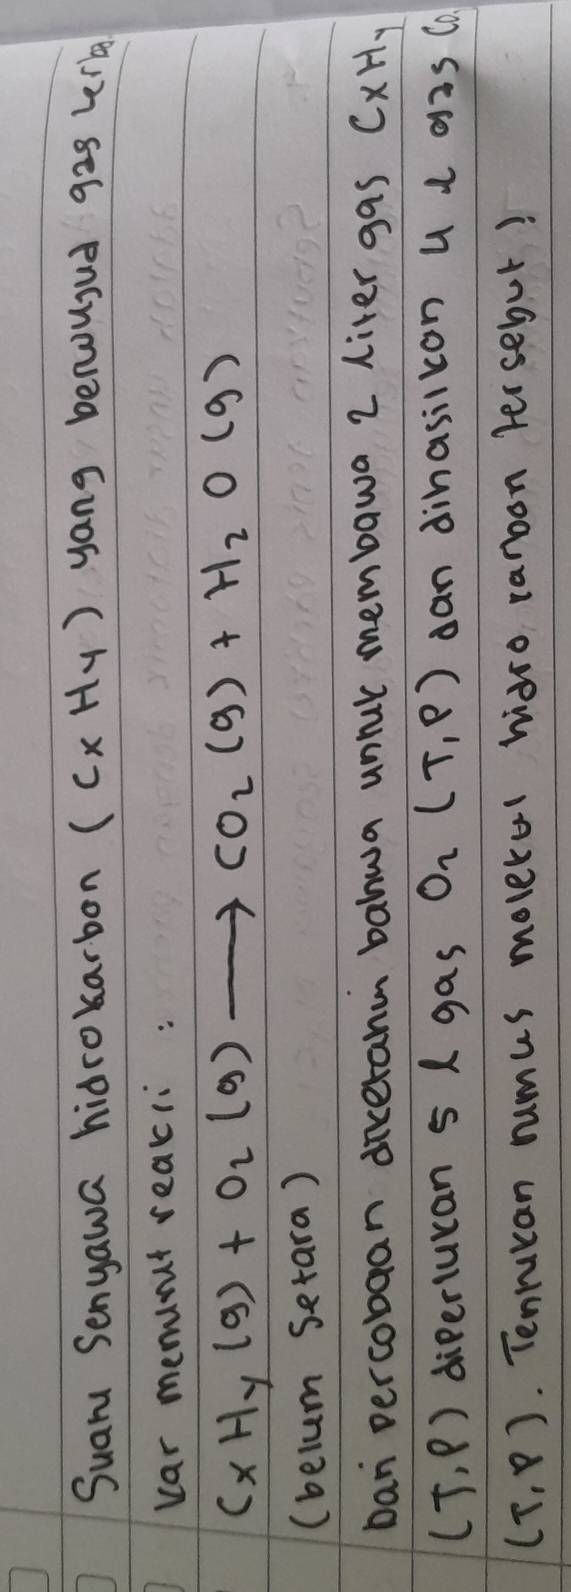 Suatu Senyawa hidrokarbon (CxHy) yang berwujud gas terba
kar menurut reaksi :
CxHy (g) + O2 (g) → CO2 (g) + H2O (g)
(belum Setara)
Dari percobaan diketahui bahwa untuk membawa 2 liter gas CxHy
(T,P) diperlukan 5 l gas O2 (T,P) dan dihasilkan 4 l gas CO2
(T,P). Tentukan rumus molekul hidro karbon tersebut!